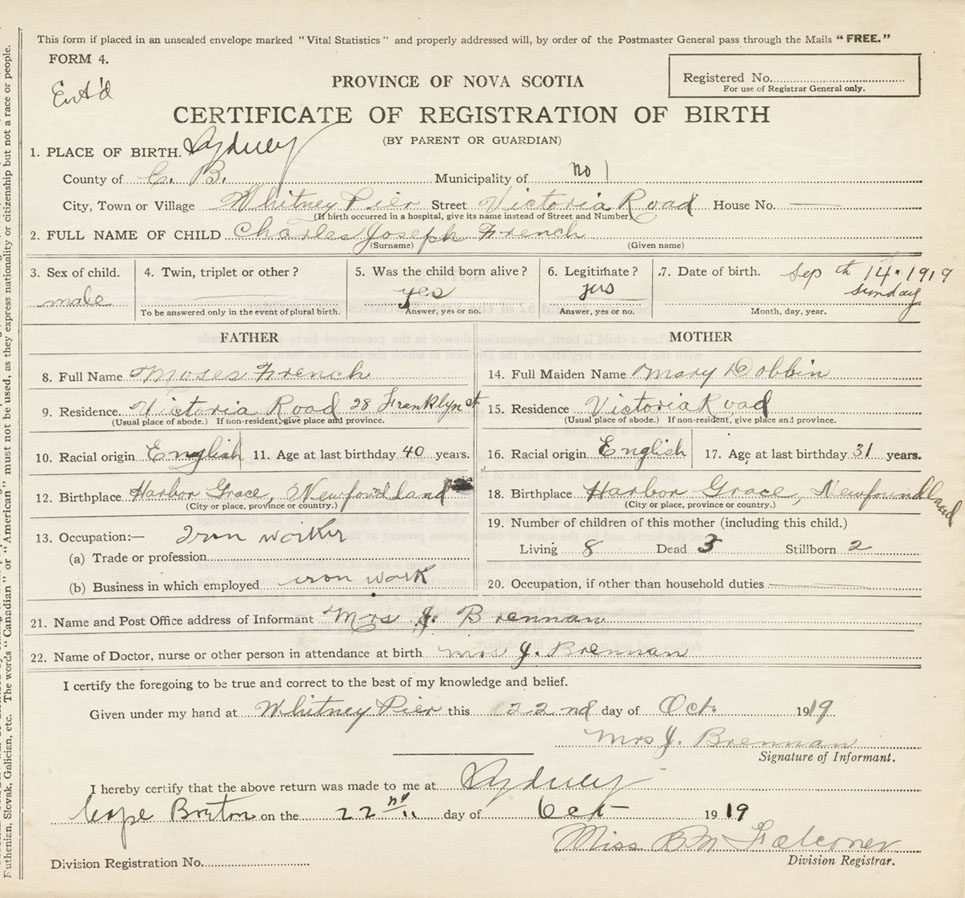 This form if placed in an unsealed envelope marked "Vital Statistics" and properly addressed will, by order of the Postmaster General pass through the Mails "FREE."
FORM 4.
Ent'd
PROVINCE OF NOVA SCOTIA
Registered No.
For use of Registrar General only.
CERTIFICATE OF REGISTRATION OF BIRTH
(BY PARENT OR GUARDIAN)
1. PLACE OF BIRTH. Sydney
County of C. B. Municipality of no 1
City, Town or Village Whitney Pier Street Victoria Road House No. —
(If birth occurred in a hospital, give its name instead of Street and Number)
2. FULL NAME OF CHILD Charles Joseph French
(Surname) (Given name)
3. Sex of child. 4. Twin, triplet or other? 5. Was the child born alive? 6. Legitimate? 7. Date of birth. Sep th 14. 1919
male yes yes sunday
To be answered only in the event of plural birth. Answer, yes or no. Answer, yes or no. Month, day, year.
FATHER MOTHER
8. Full Name Moses French 14. Full Maiden Name Mary Dobbin
9. Residence Victoria Road 28 Franklyn st 15. Residence Victoria Road
(Usual place of abode.) If non-resident, give place and province. (Usual place of abode.) If non-resident, give place and province.
10. Racial origin English 11. Age at last birthday 40 years. 16. Racial origin English 17. Age at last birthday 31 years.
12. Birthplace Harbor Grace, Newfoundland 18. Birthplace Harbor Grace, Newfoundland
(City or place, province or country.) (City or place, province or country.)
13. Occupation:— Iron worker 19. Number of children of this mother (including this child.)
(a) Trade or profession Living 8 Dead 3 Stillborn 2
(b) Business in which employed iron work 20. Occupation, if other than household duties
21. Name and Post Office address of Informant Mrs J. Brennan
22. Name of Doctor, nurse or other person in attendance at birth mrs J. Brennan
I certify the foregoing to be true and correct to the best of my knowledge and belief.
Given under my hand at Whitney Pier this 22nd day of Oct. 1919
Mrs J. Brennan
Signature of Informant.
I hereby certify that the above return was made to me at Sydney
Cape Breton on the 22nd day of Oct 1919
Miss B M Falconer
Division Registrar.
Division Registration No.
Ruthenian, Slovak, Galician, etc. The words "Canadian" or "American" must not be used, as they express nationality or citizenship but not a race or people.